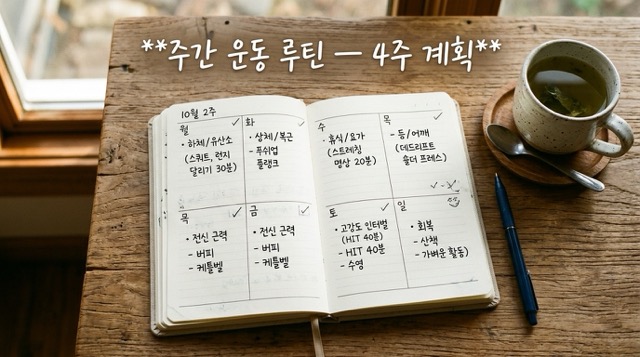 **주간 운동 루틴 — 4주 계획**
10월 2주
월
• 하체/유산소
(스쿼트, 런지
달리기 30분)
화
• 상체/복근
- 푸쉬업
플랭크
수
• 휴식/요가
(스트레칭
명상 20분)
목
• 등/어깨
(데드리프트
숄더 프레스)
목
• 전신 근력
- 버피
- 케틀벨
금
• 전신 근력
- 버피
- 케틀벨
토
• 고강도 인터벌
(HIT 40분)
- HIT 40분
- 수영
일
• 회복
- 산책
- 가벼운 활동)